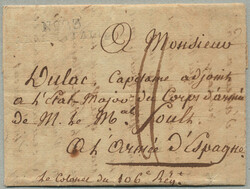 A Monsieur
Dulac, Capitaine adjoint
a l'Etat Major du Corps d'armée
de M. le Mal Soult
A l'Armée d'Espagne
le Colonel du 106e Régt